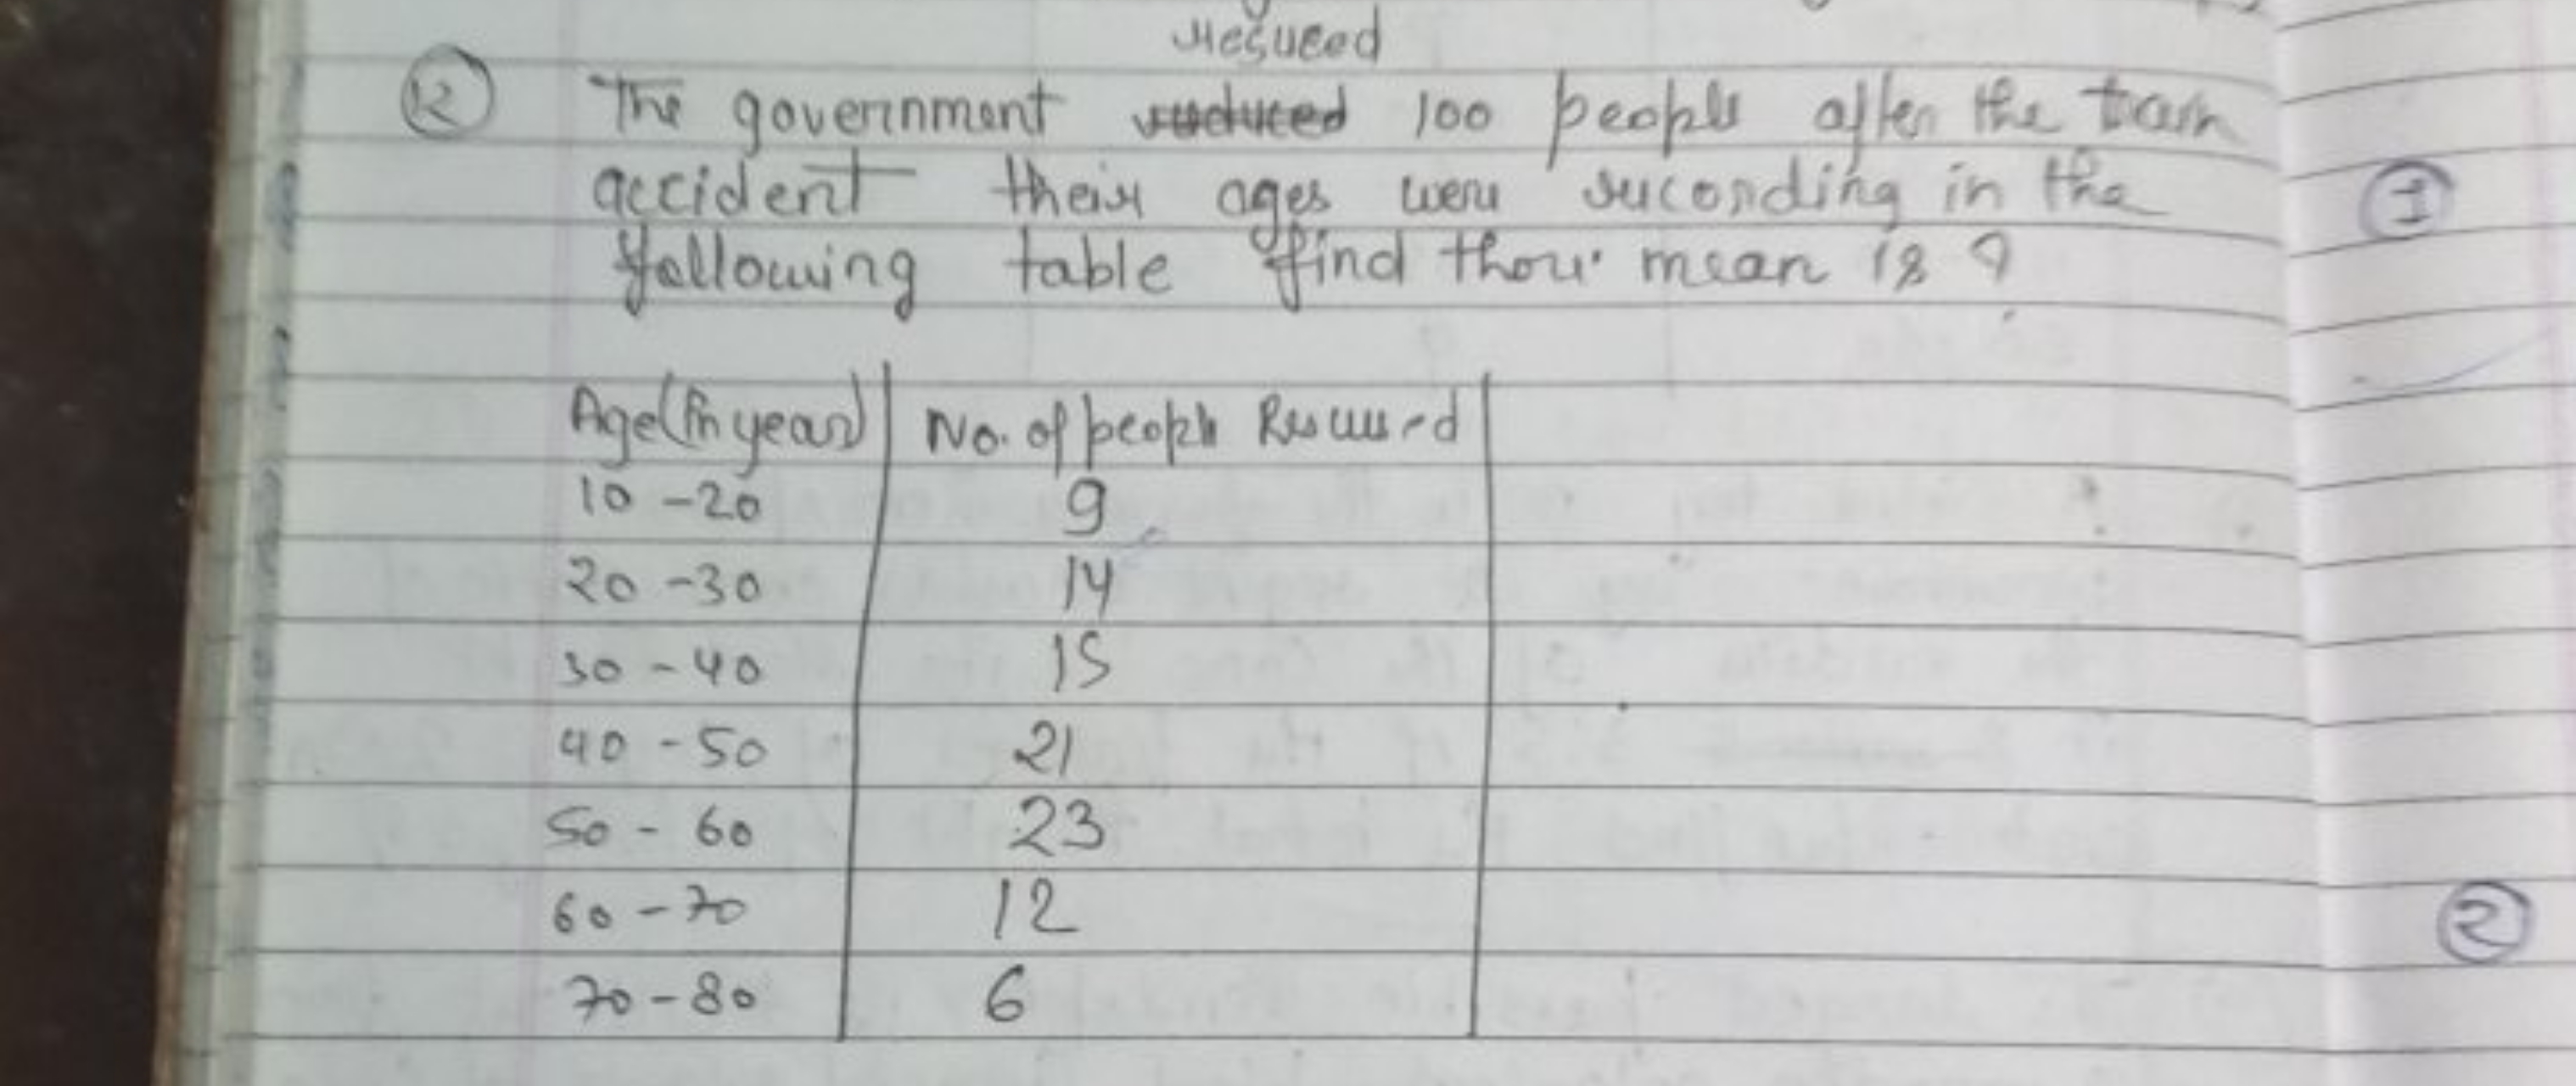 rescued
12 The government 100 people after the train
accident their ages were recording in the
following table find their mean is ?
Age(in year) No. of people Rescued
10 - 20 9
20 - 30 14
30 - 40 15
40 - 50 21
50 - 60 23
60 - 70 12
70 - 80 6
1
2